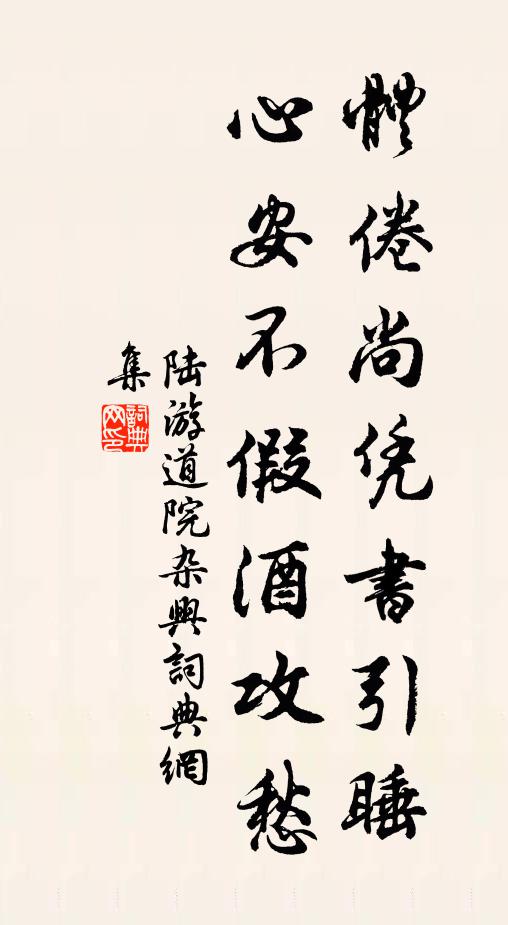 體倦尚凭書引睡
心安不假酒攻愁
陆游道院杂興詞典網
集
詞典
网印